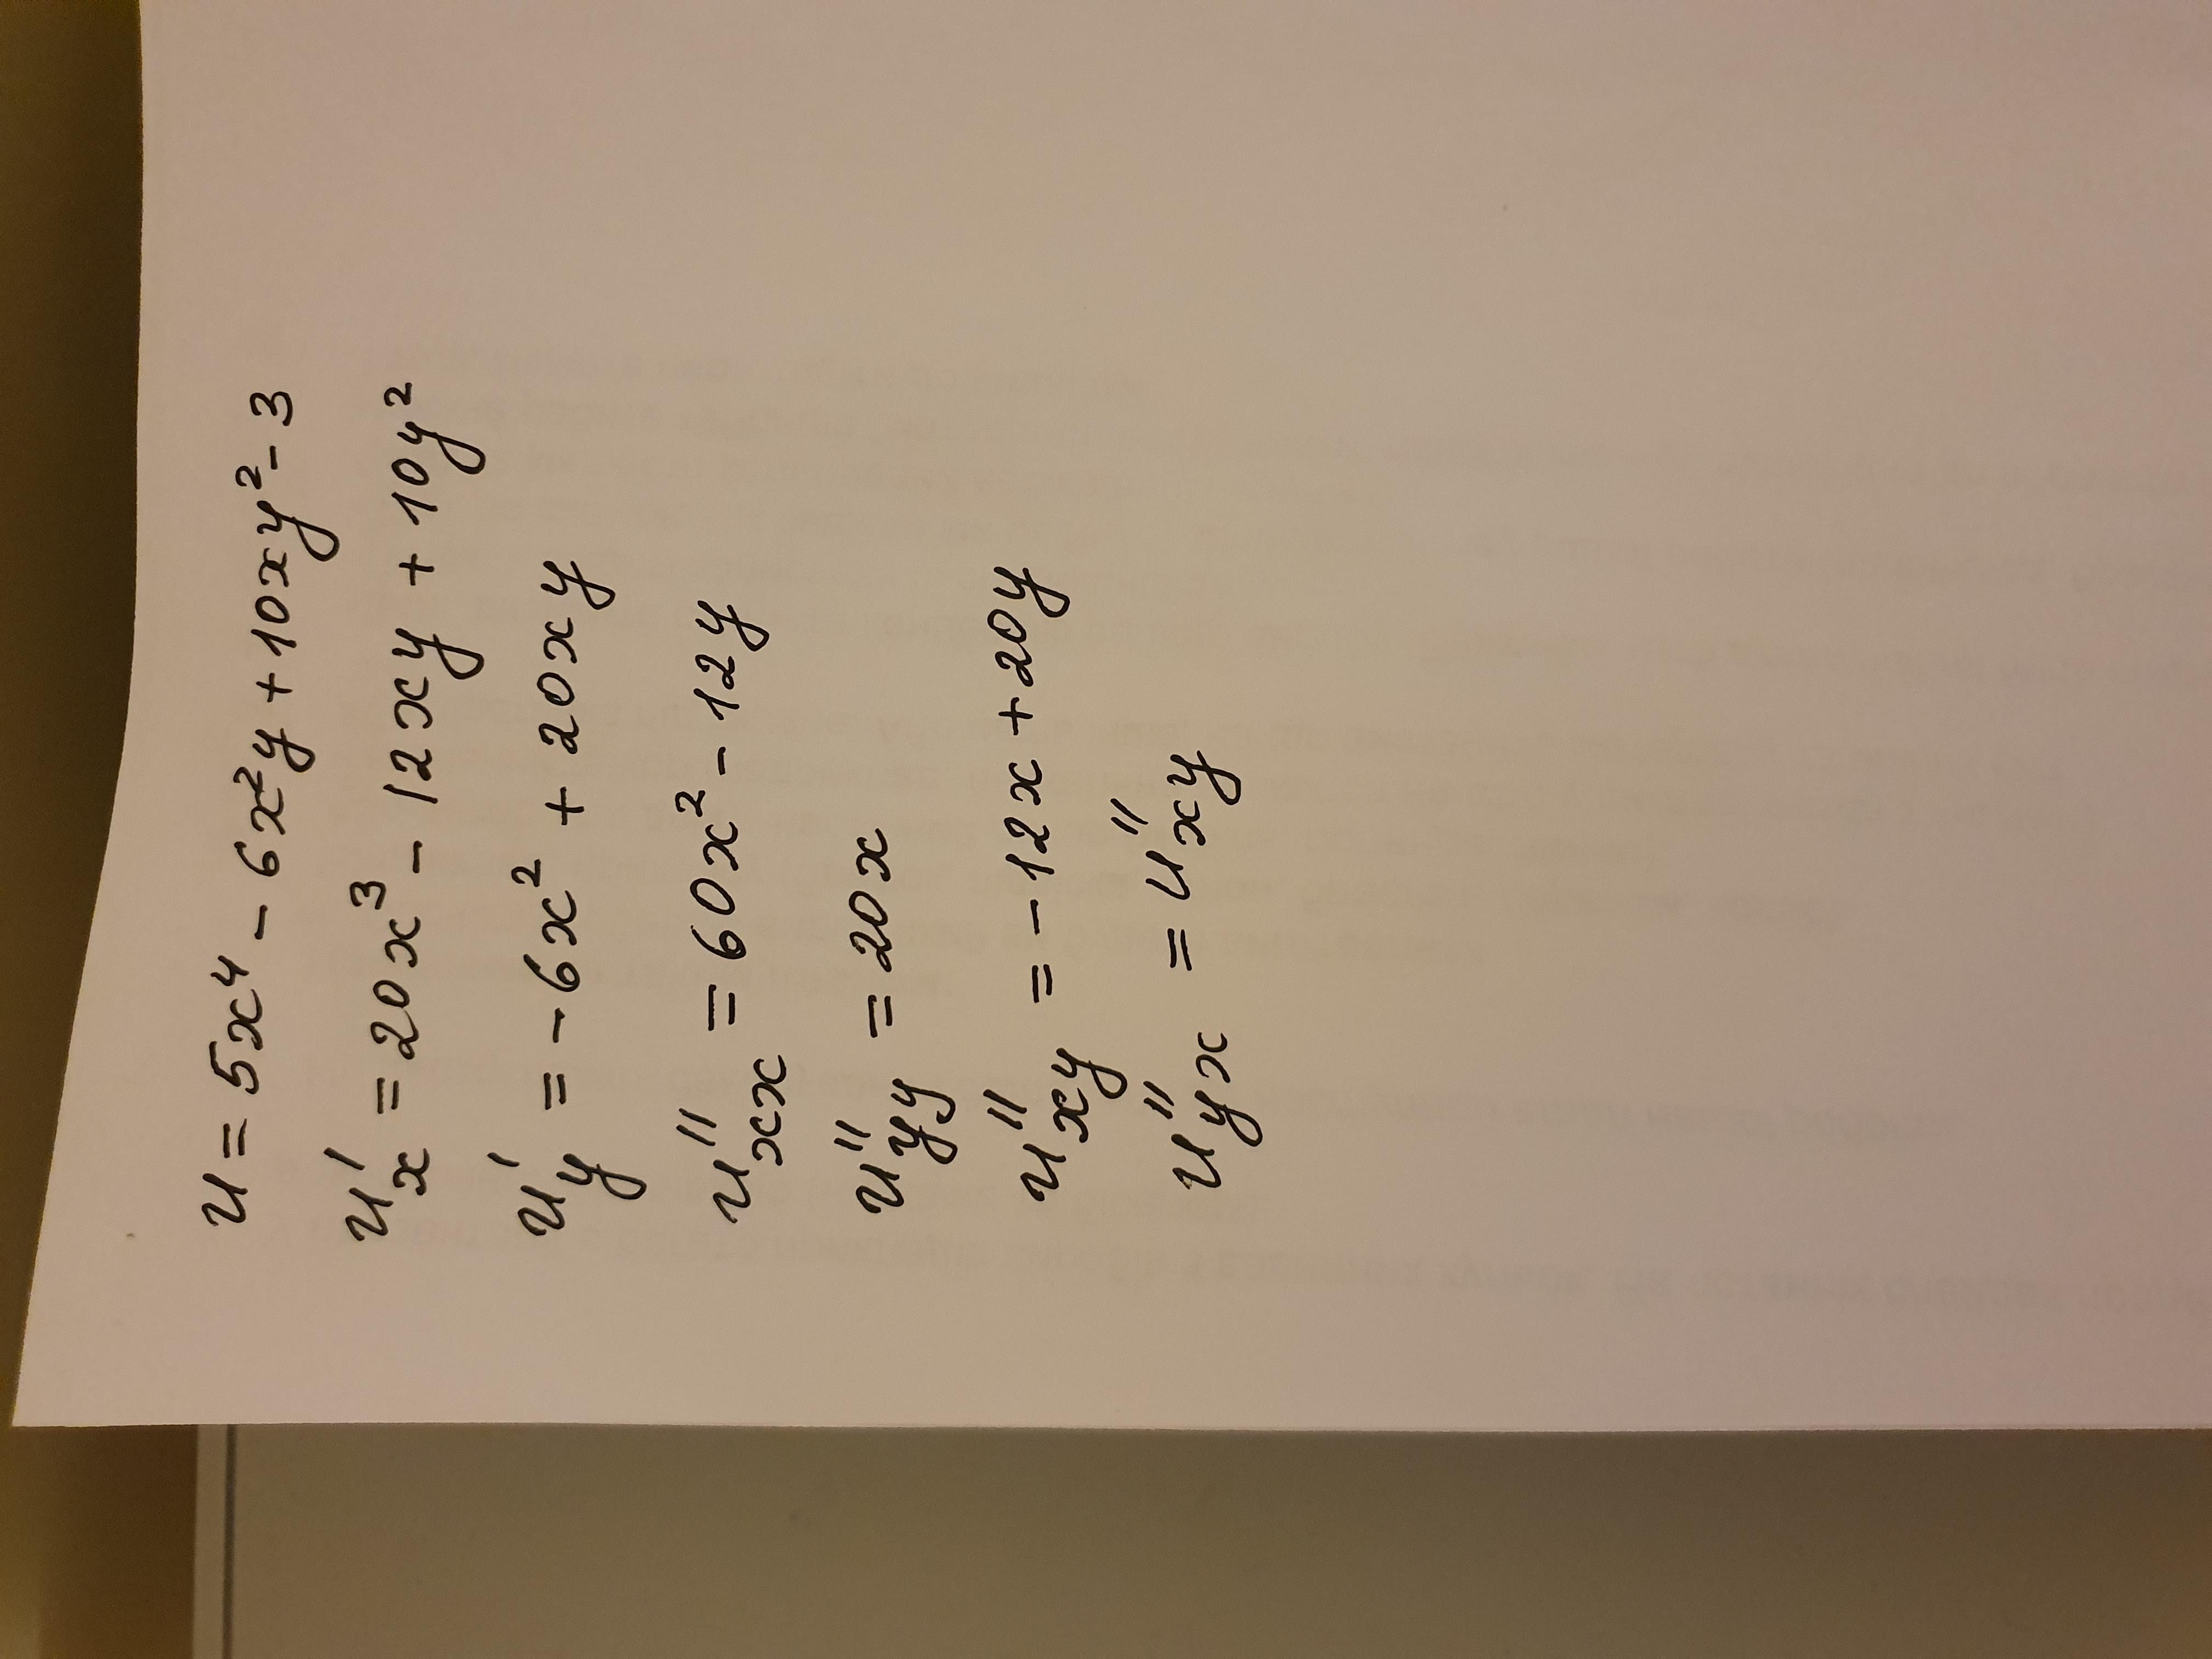 u = 5x⁴ - 6x²y + 10xy² - 3
u'ₓ = 20x³ - 12xy + 10y²
u'_y = -6x² + 20xy
u''ₓₓ = 60x² - 12y
u''_yy = 20x
u''_xy = -12x + 20y
u''_yx = u''_xy